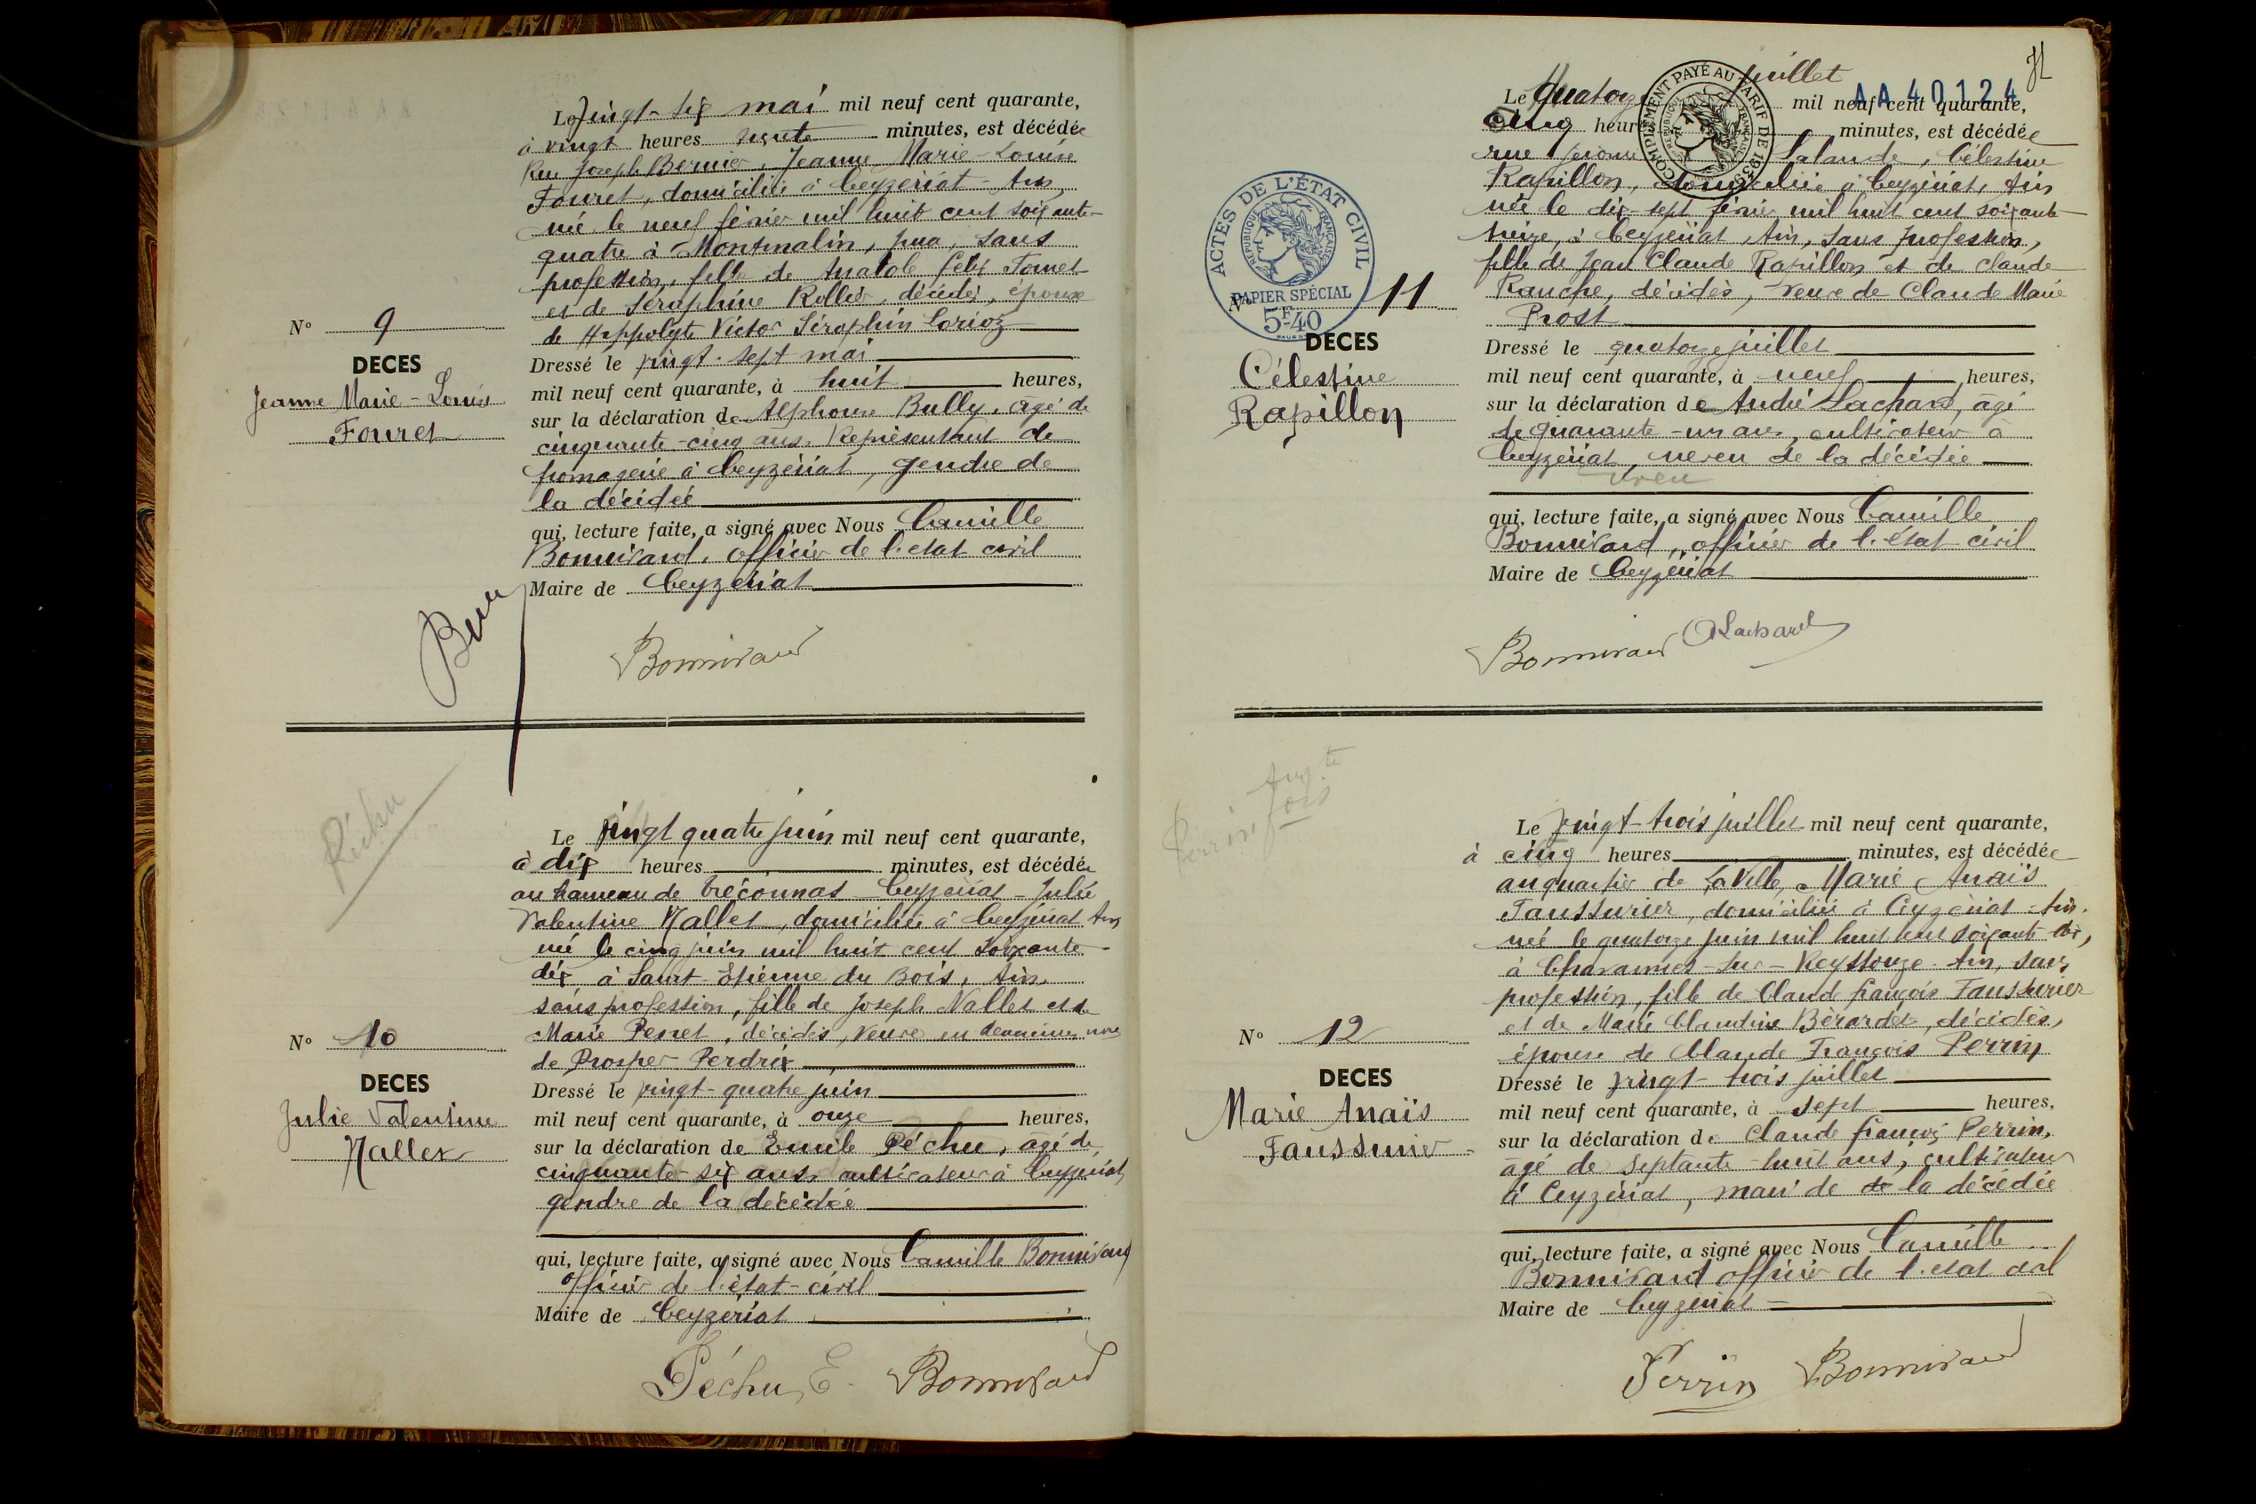 N° 9
DECES
Jeanne Marie-Louise
Fouret
Le vingt-six mai mil neuf cent quarante,
à vingt heures trente minutes, est décédée
Rue Joseph Bernier, Jeanne Marie-Louise
Fouret, domiciliée à Ceyzériat Ain
née le neuf février mil huit cent soixante-
quatre à Montmalin, Jura, sans
profession, fille de Anatole Félix Fouret
et de Séraphine Rollier, décédés, épouse
de Hyppolyte Victor Séraphin Corioz
Dressé le vingt-sept mai
mil neuf cent quarante, à huit heures,
sur la déclaration de Alphonse Bully, âgé de
cinquante-cinq ans, Représentant de
fromagerie à Ceyzériat, gendre de
la décédée
qui, lecture faite, a signé avec Nous Camille
Bonnivard, officier de l'état civil
Maire de Ceyzériat
Bonnivard
Péchu
N° 10
DECES
Julie Valentine
Nallet
Le vingt quatre juin mil neuf cent quarante,
à dix heures minutes, est décédée
au hameau de Tréconnas Ceyzériat - Julie
Valentine Nallet, domiciliée à Ceyzériat Ain
née le cinq juin mil huit cent soixante-
dix à Saint-Etienne du Bois, Ain,
sans profession, fille de Joseph Nallet et de
Marie Pesret, décédés, veuve en deuxièmes noces
de Prosper Perdrix
Dressé le vingt-quatre juin
mil neuf cent quarante, à onze heures,
sur la déclaration de Emile Péchu, âgé de
cinquante six ans, cultivateur à Ceyzériat,
gendre de la décédée
qui, lecture faite, a signé avec Nous Camille Bonnivard
officier de l'état-civil
Maire de Ceyzériat
Péchu E. Bonnivard
ACTES DE L'ÉTAT CIVIL
RÉPUBLIQUE FRANÇAISE
PAPIER SPÉCIAL
5F-40
N° 11
DECES
Célestine
Rapillon
COMPLÉMENT PAYÉ AU TARIF DE 1939
RÉPUBLIQUE FRANÇAISE
AA 40124
Le Quatorze juillet mil neuf cent quarante,
cinq heures minutes, est décédée
rue Jérome Lalande, Célestine
Rapillon, domiciliée à Ceyzériat, Ain
née le dix sept février mil huit cent soixante
seize, à Ceyzériat, Ain, sans profession,
fille de Jean Claude Rapillon et de Claude
Rauche, décédés, veuve de Claude Marie
Prost
Dressé le quatorze juillet
mil neuf cent quarante, à neuf heures,
sur la déclaration de André Lachard, âgé
de quarante-un ans, cultivateur à
Ceyzériat, neveu de la décédée
neveu
qui, lecture faite, a signé avec Nous Camille
Bonnivard, officier de l'état civil
Maire de Ceyzériat
Bonnivard Lachard
N° 12
DECES
Marie Anaïs
Faussurier
Le vingt-trois juillet mil neuf cent quarante,
à cinq heures minutes, est décédée
au quartier de La Ville, Marie Anaïs
Faussurier, domiciliée à Ceyzériat - Ain.
née le quatorze juin mil huit cent soixante-dix,
à Chavannes-sur-Reyssouze - Ain, sans
profession, fille de Claude françois Faussurier
et de Marie Claudine Bérardet, décédés,
épouse de Claude François Perrin
Dressé le vingt-trois juillet
mil neuf cent quarante, à sept heures,
sur la déclaration de Claude françois Perrin,
âgé de septante-huit ans, cultivateur
à Ceyzériat, mari de de la décédée
qui, lecture faite, a signé avec Nous Camille
Bonnivard officier de l'état civil
Maire de Ceyzériat
Perrin Bonnivard